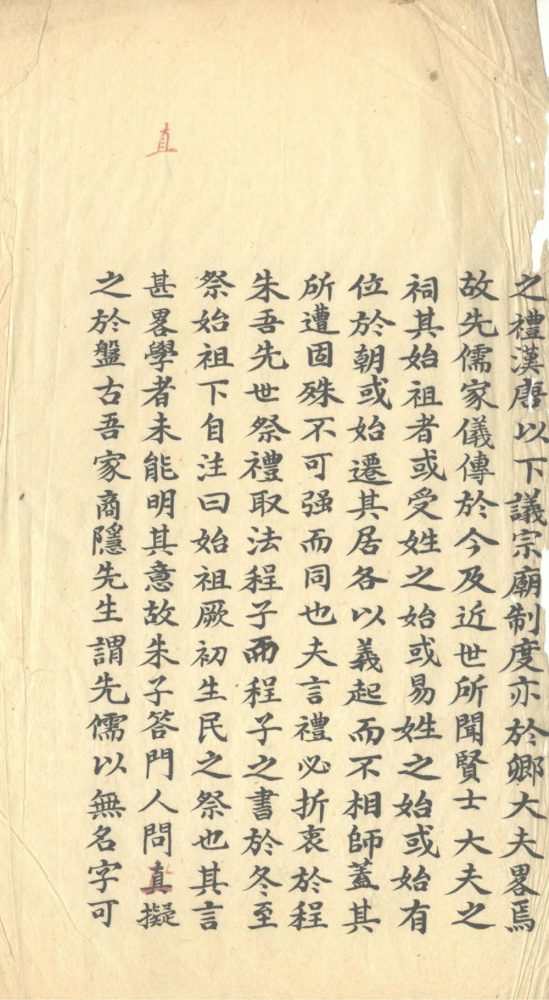 之禮漢唐以下議宗廟制度亦於鄉大夫畧焉
故先儒家儀傳於今及近世所聞賢士大夫之
祠其始祖者或受姓之始或易姓之始或始有
位於朝或始遷其居各以義起而不相師蓋其
所遭固殊不可强而同也夫言禮必折衷於程
朱吾先世祭禮取法程子而程子之書於冬至
祭始祖下自注曰始祖厥初生民之祭也其言
甚畧學者未能明其意故朱子答門人問直擬
之於盤古吾家商隱先生謂先儒以無名字可
直